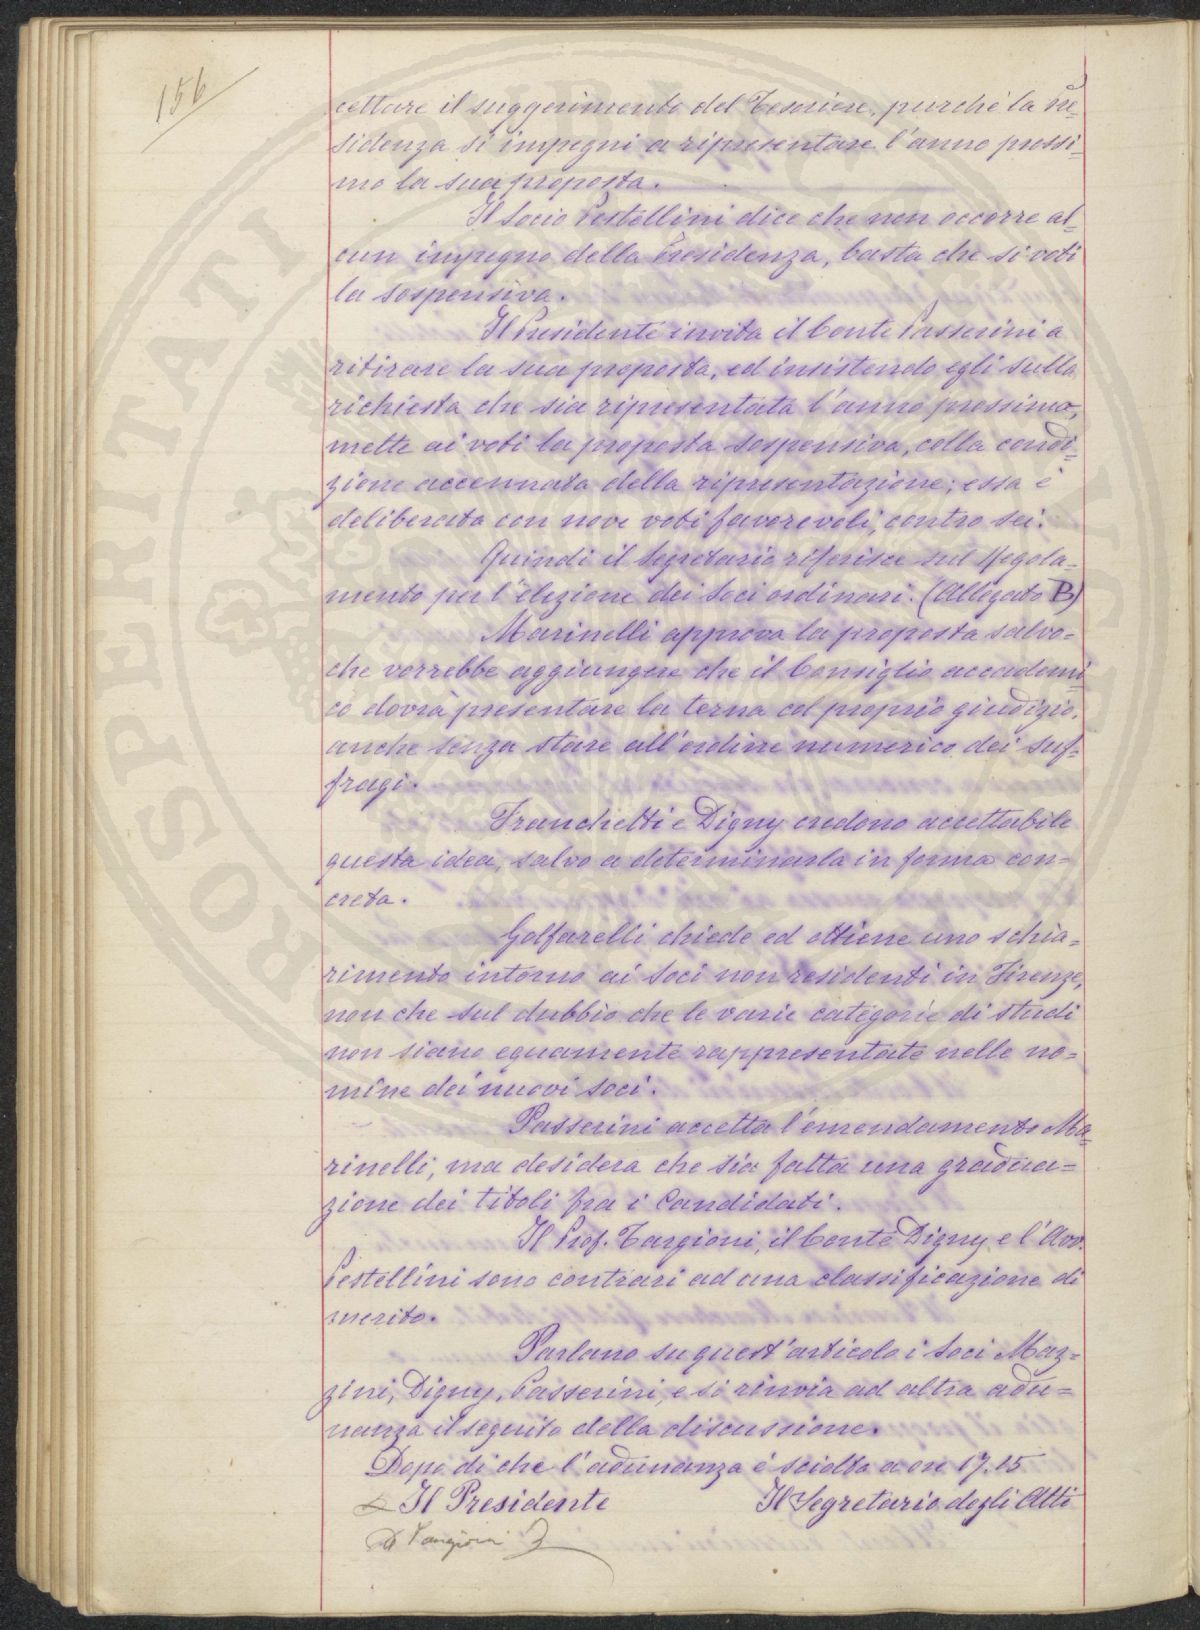 156
cettare il suggerimento del Tesoriere, purché la Pre=
sidenza si impegni a ripresentare l'anno prossi=
mo la sua proposta.
Il Socio Pestellini dice che non occorre al=
cun impegno della Presidenza, basta che si voti
la sospensiva.
Il Presidente invita il Conte Passerini a
ritirare la sua proposta, ed insistendo egli sulla
richiesta che sia ripresentata l'anno prossimo,
mette ai voti la proposta sospensiva, colla condi=
zione accennata della ripresentazione; essa è
deliberata con nove voti favorevoli, contro sei.
Quindi il Segretario riferisce sul Regola=
mento per l'elezione dei Soci ordinari. (Allegato B)
Marinelli approva la proposta salvo=
che vorrebbe aggiungere che il Consiglio accademi=
co dovrà presentare la terna col proprio giudizio,
anche senza stare all'ordine numerico dei suf=
fragi.
Franchetti e Digny credono accettabile
questa idea, salvo a determinarla in forma con=
creta.
Golfarelli chiede ed ottiene uno schia=
rimento intorno ai Soci non residenti in Firenze,
non che sul dubbio che le varie categorie di studi
non siano equamente rappresentate nelle no=
mine dei nuovi soci.
Passerini accetta l'emendamento Ma=
rinelli, ma desidera che sia fatta una gradua=
zione dei titoli fra i Candidati.
Il Prof. Targioni, il Conte Digny e l'Avv.
Pestellini sono contrari ad una classificazione di
merito.
Parlano su quest'articolo i Soci Maz=
zini, Digny, Passerini, e si rinvia ad altra adu=
nanza il seguito della discussione.
Dopo di che l'adunanza è sciolta a ore 17.15
Il Presidente Il Segretario degli Atti
Targioni
PROSPERITATI PUBLICAE